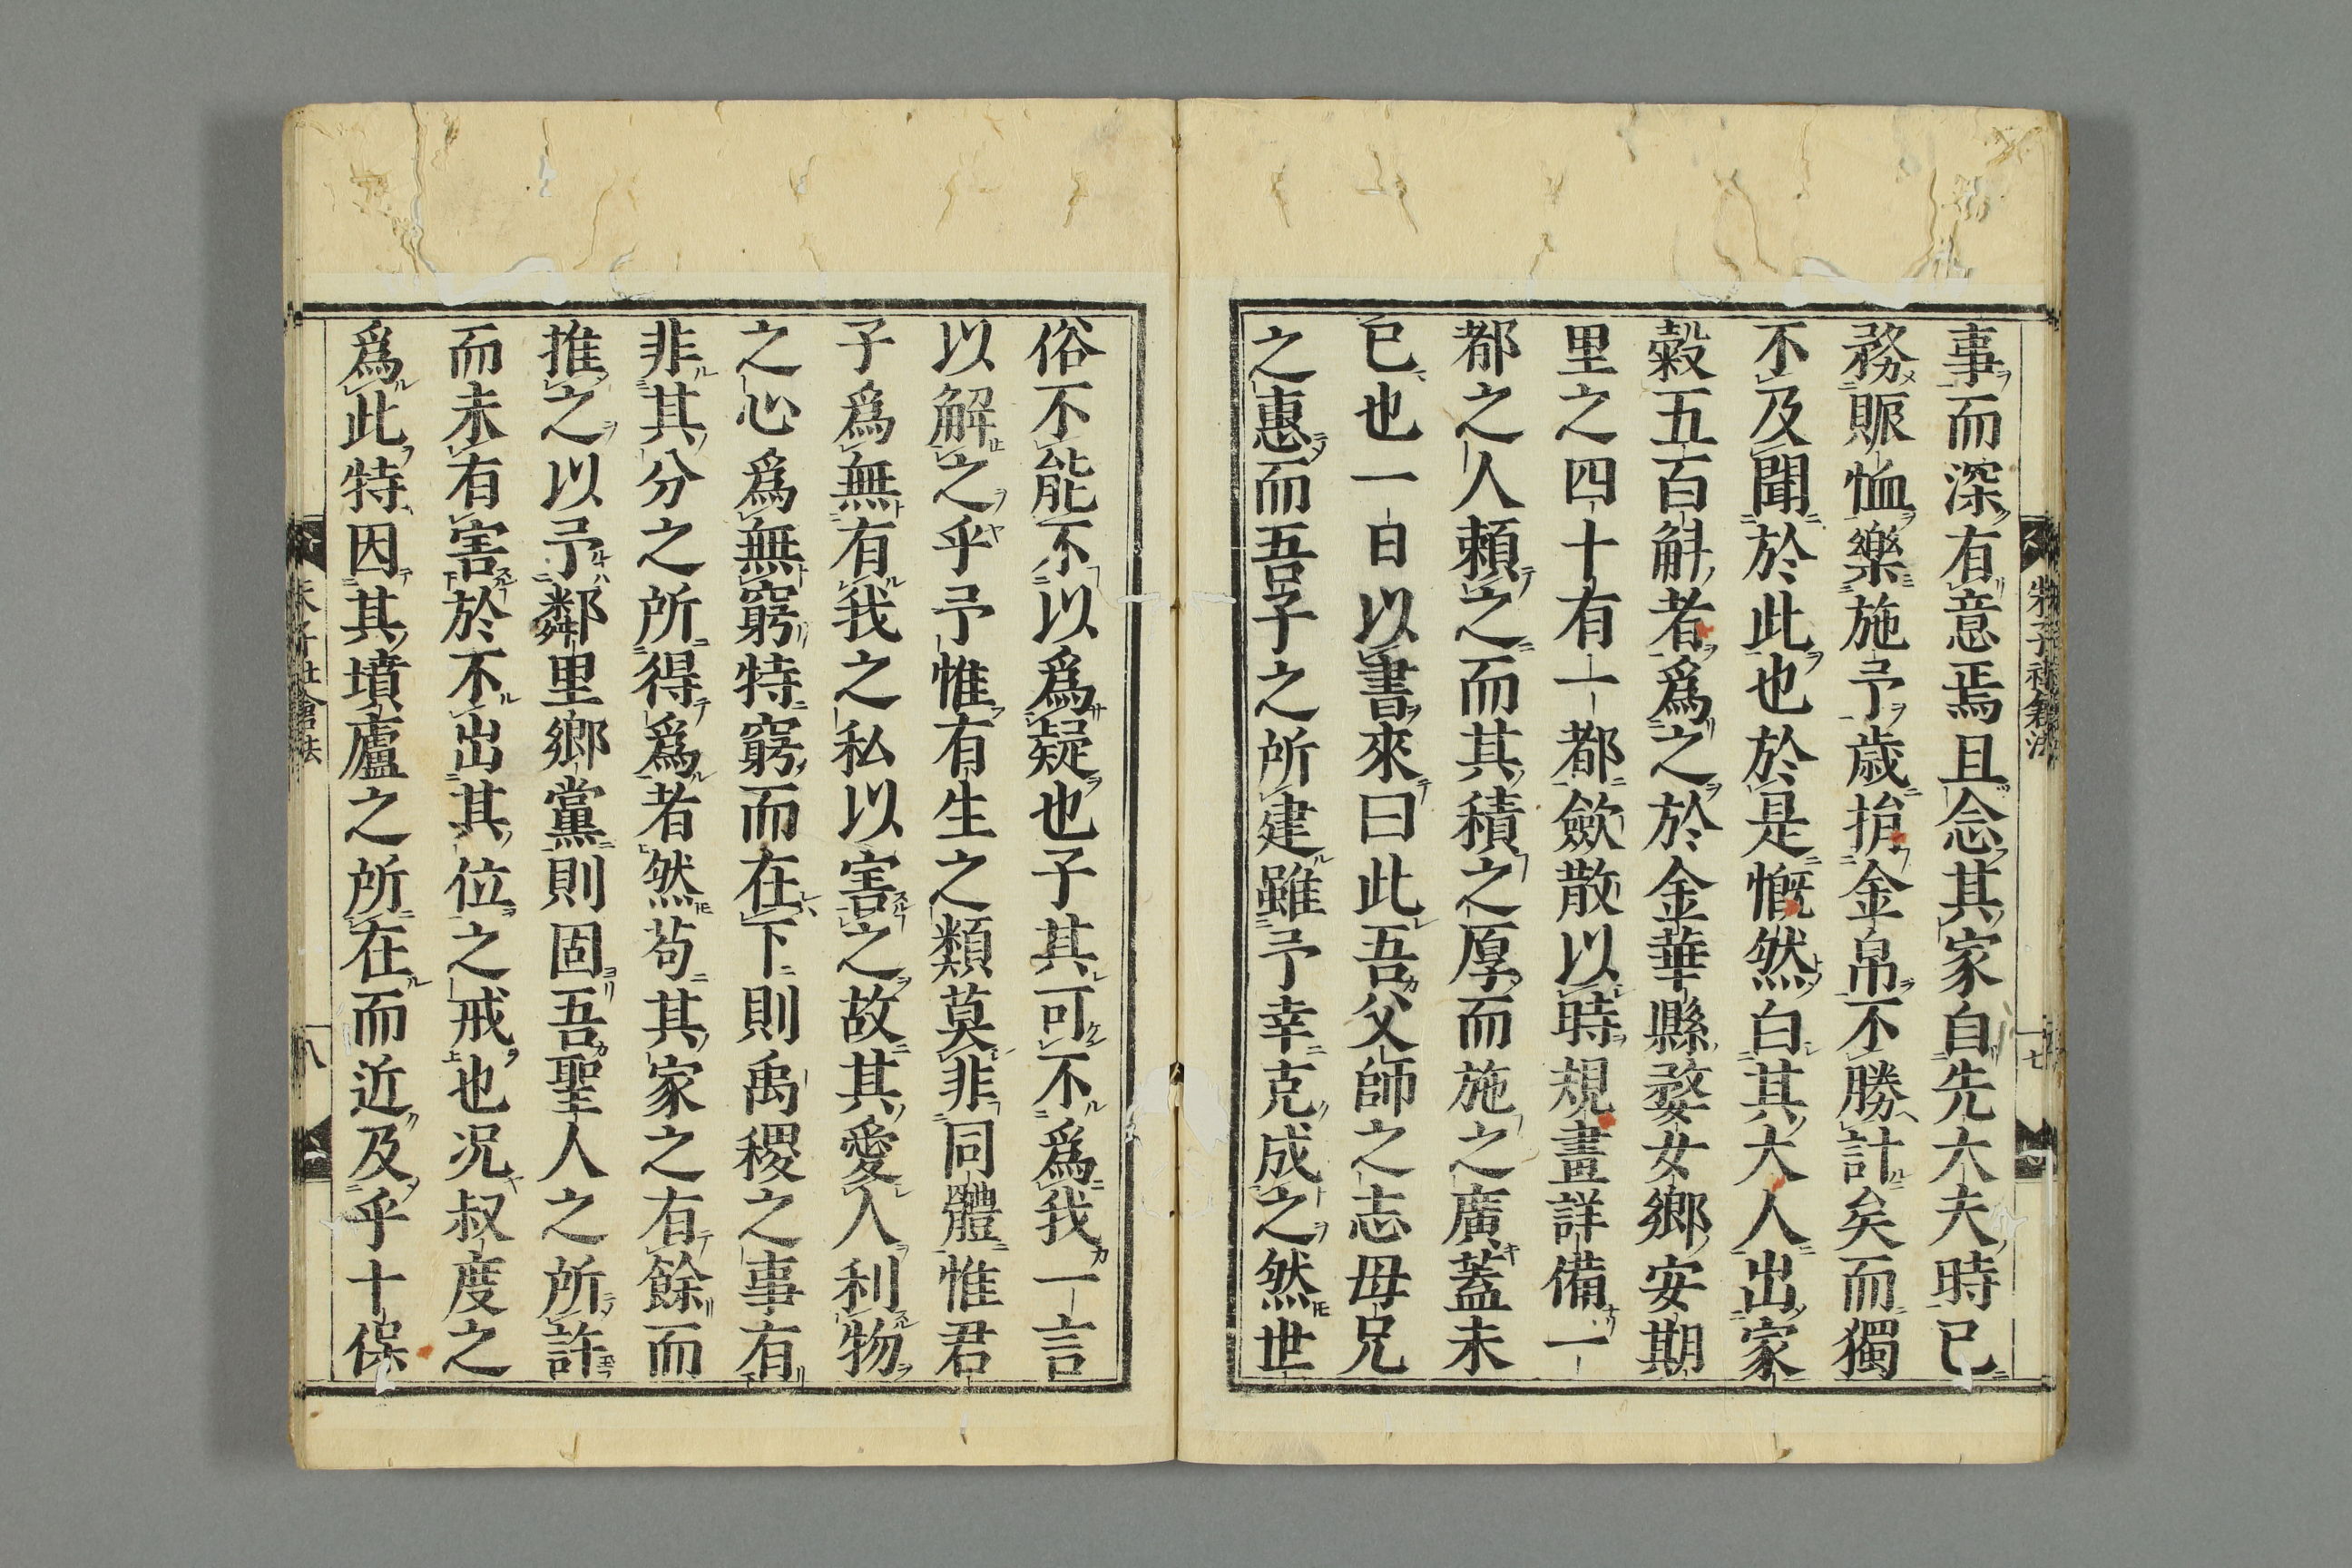 朱子社倉法
七
事而深有意焉且念其家自先大夫時已
務賑恤樂施予歲捐金帛不勝計矣而獨
不及聞於此也於是慨然白其大人出家
穀五百斛者爲之於金華縣婺女鄉安期
里之四十有一都歛散以時規畫詳備一
都之人賴之而其積之厚而施之廣蓋未
已也一日以書來曰此吾父師之志母兄
之惠而吾子之所建雖予幸克成之然世
俗不能不以爲疑也子其可不爲我一言
以解之乎予惟有生之類莫非同體惟君
子爲無有我之私以害之故其愛人利物
之心爲無窮特窮而在下則禹稷之事有
非其分之所得爲者然苟其家之有餘而
推之以予鄰里鄉黨則固吾聖人之所許
而未有害於不出其位之戒也况叔度之
爲此特因其墳廬之所在而近及乎十保
朱子社倉法
八